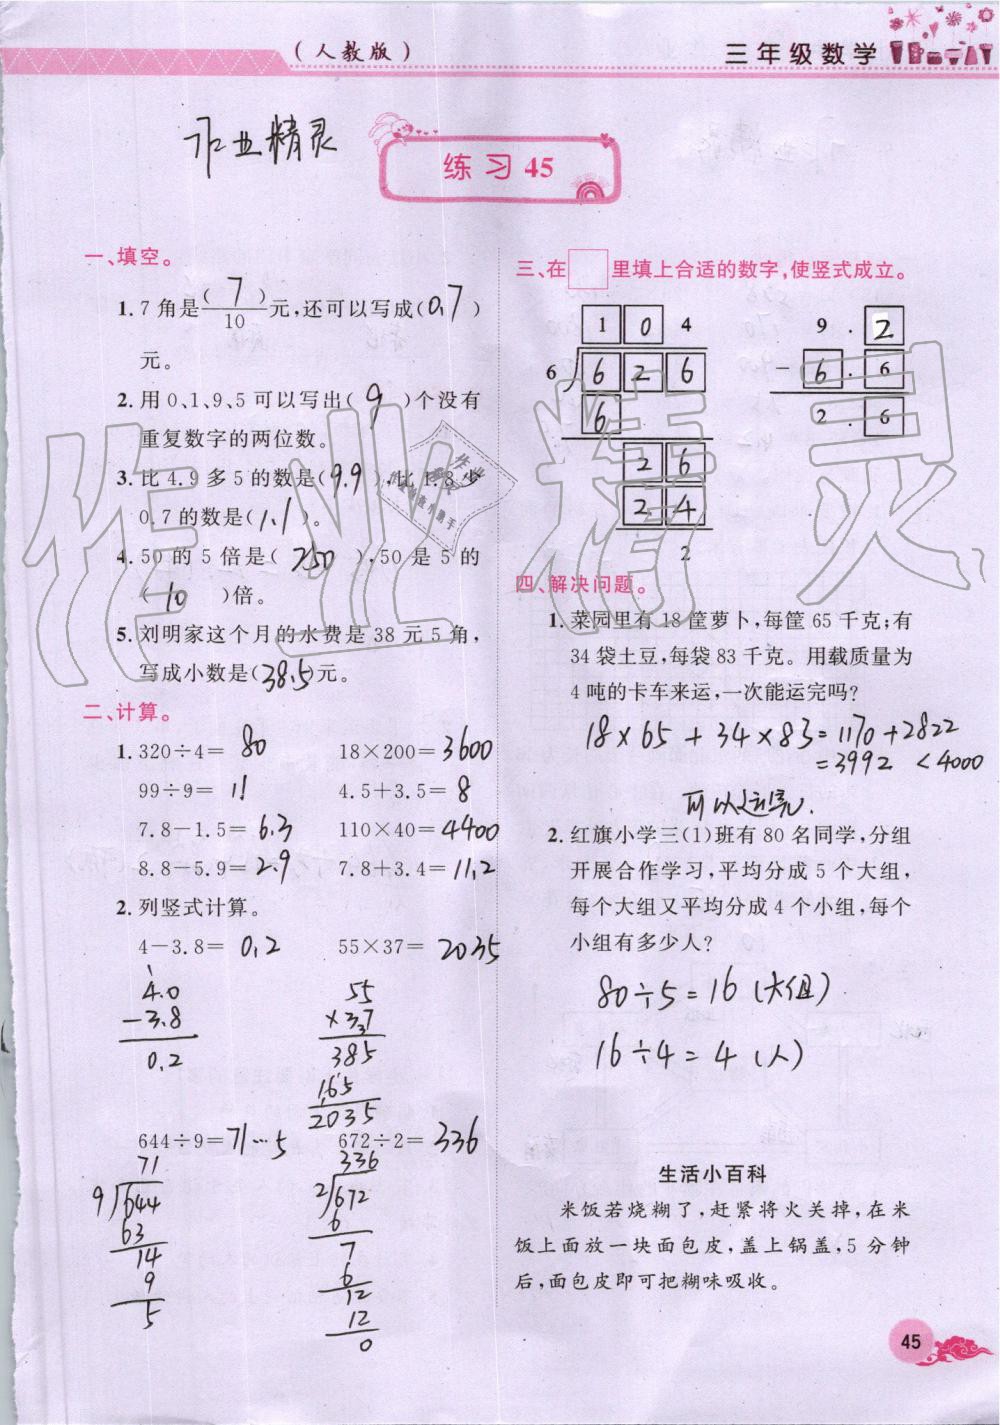 (人教版)
三年级数学
作业精灵
练习 45
一、填空。
1. 7 角是( 7 )/10 元,还可以写成( 0.7 )
元。
2. 用 0、1、9、5 可以写出( 9 )个没有
重复数字的两位数。
3. 比 4.9 多 5 的数是( 9.9 ),比 1.8 少
0.7 的数是( 1.1 )。
4. 50 的 5 倍是( 250 ),50 是 5 的
( 10 )倍。
5. 刘明家这个月的水费是 38 元 5 角,
写成小数是( 38.5 )元。
二、计算。
1. 320÷4= 80 18×200= 3600
99÷9= 11 4.5+3.5= 8
7.8-1.5= 6.3 110×40= 4400
8.8-5.9= 2.9 7.8+3.4= 11.2
2. 列竖式计算。
4-3.8= 0.2 55×37= 2035
4.0
-3.8
0.2
55
×37
385
165
2035
644÷9= 71…5 672÷2= 336
71
9 644
63
14
9
5
336
2 672
6
7
6
12
12
0
三、在□里填上合适的数字,使竖式成立。
1 0 4
6 6 2 6
6
2 6
2 4
2
9 . 2
- 6 . 6
2 . 6
四、解决问题。
1. 菜园里有 18 筐萝卜,每筐 65 千克;有
34 袋土豆,每袋 83 千克。用载质量为
4 吨的卡车来运,一次能运完吗?
18×65+34×83=1170+2822
=3992 <4000
可以运完.
2. 红旗小学三(1)班有 80 名同学,分组
开展合作学习,平均分成 5 个大组,
每个大组又平均分成 4 个小组,每个
小组有多少人?
80÷5=16(大组)
16÷4=4(人)
生活小百科
米饭若烧糊了,赶紧将火关掉,在米
饭上面放一块面包皮,盖上锅盖,5 分钟
后,面包皮即可把糊味吸收。
45
作业精灵